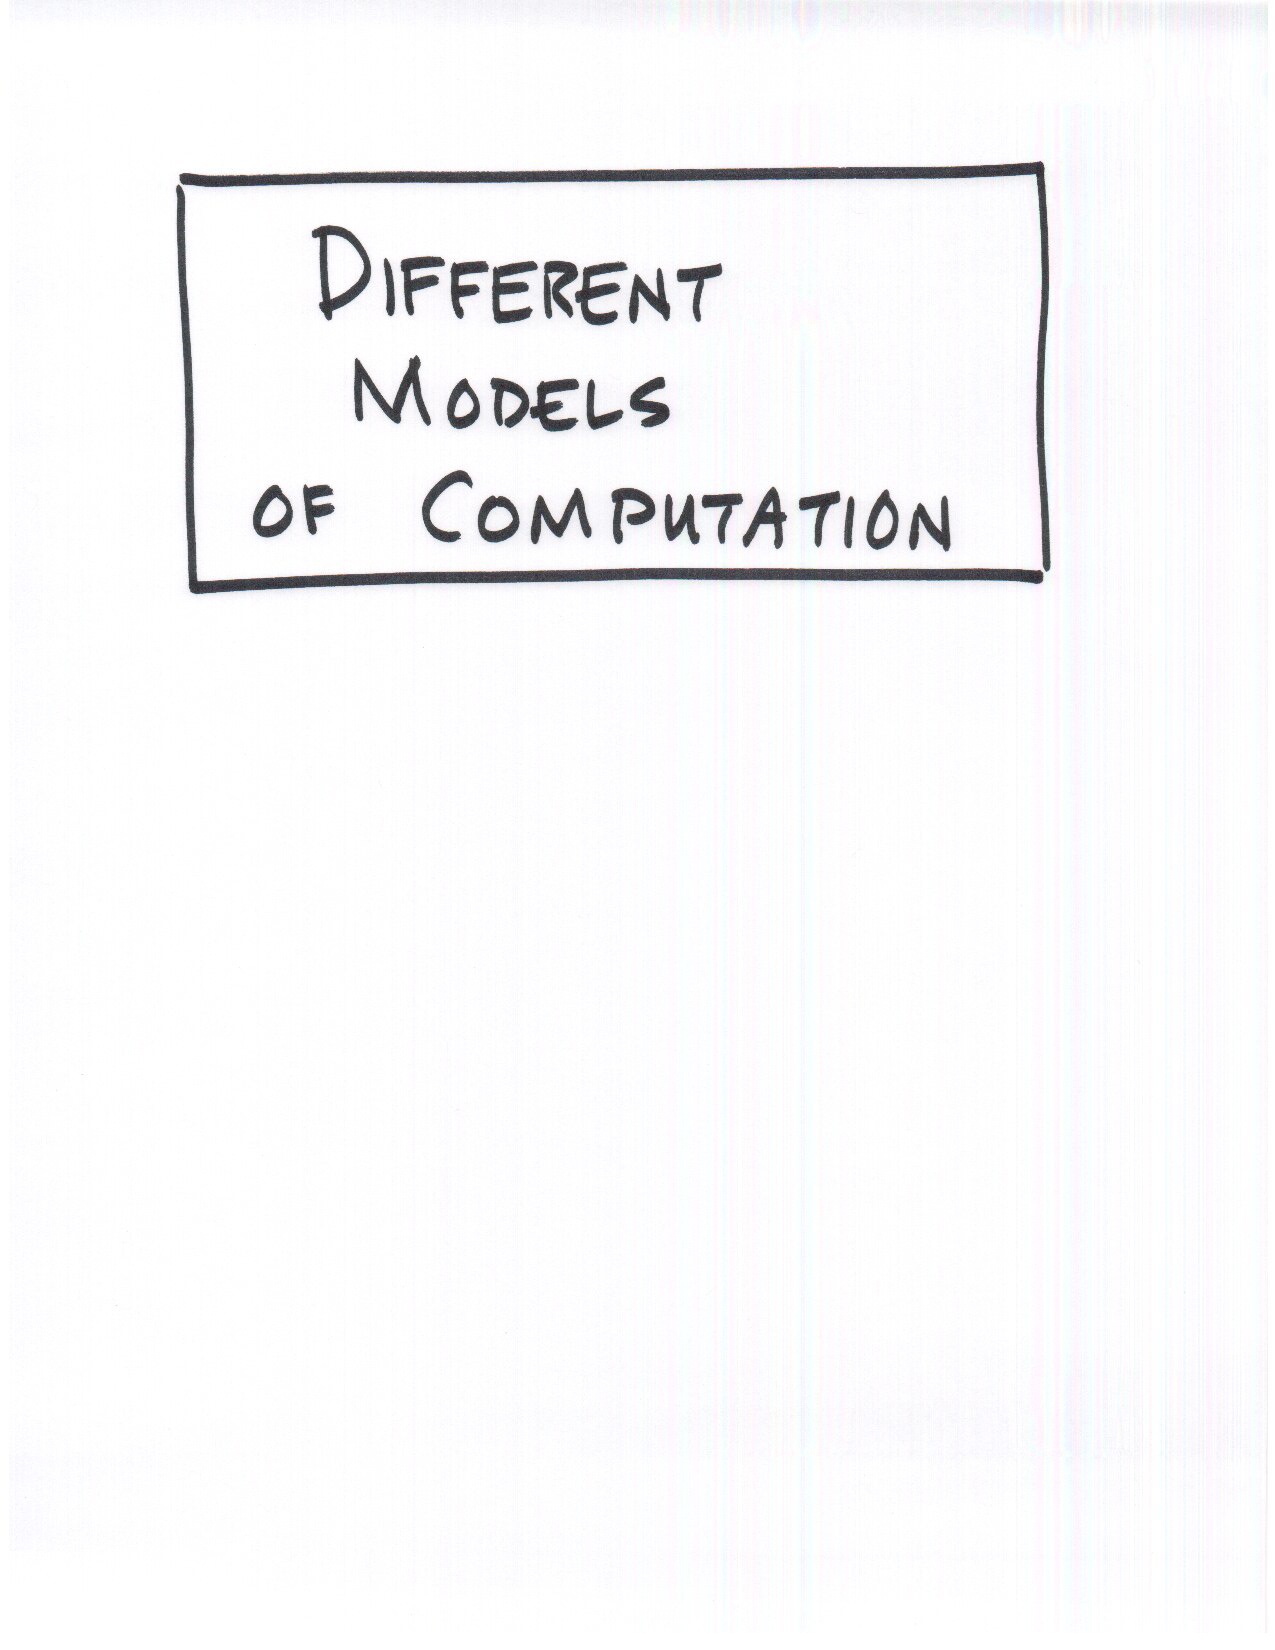 DIFFERENT
MODELS
OF COMPUTATION